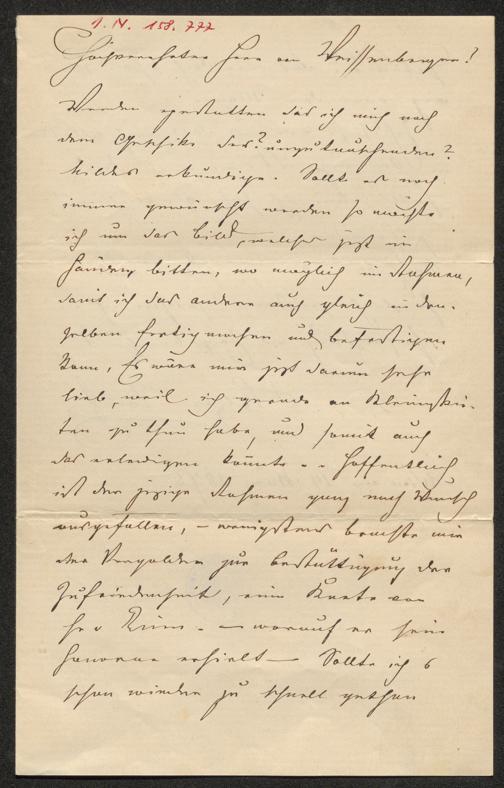 J. N. 158.777
Hochverehrter Herr von Weissenberger!
Werden gestatten das ich mich nach
dem Geschike des? umzutauschenden?
bildes erkundige. Sollte es noch
immer gewünscht werden so möchte
ich um das Bild, welches jezt in
Händen bitten, wo möglich im Rahmen,
damit ich das andere auch gleich in dem-
selben fertig machen und befestigen
kann, Es wäre mir jezt darum sehr
lieb, weil ich gerade an Kleinigkei-
ten zu thun habe, und somit auch
das erledigen könnte - - Hoffentlich
ist der jezige Rahmen ganz nach Wunsch
ausgefallen, – wenigstens brachte mir
der Vergolder zur bestättigung der
Zufriedenheit, eine Karte von
H v – worauf er sein
Honorar erhielt — Sollte ich
schon wieder zu schnell gethan